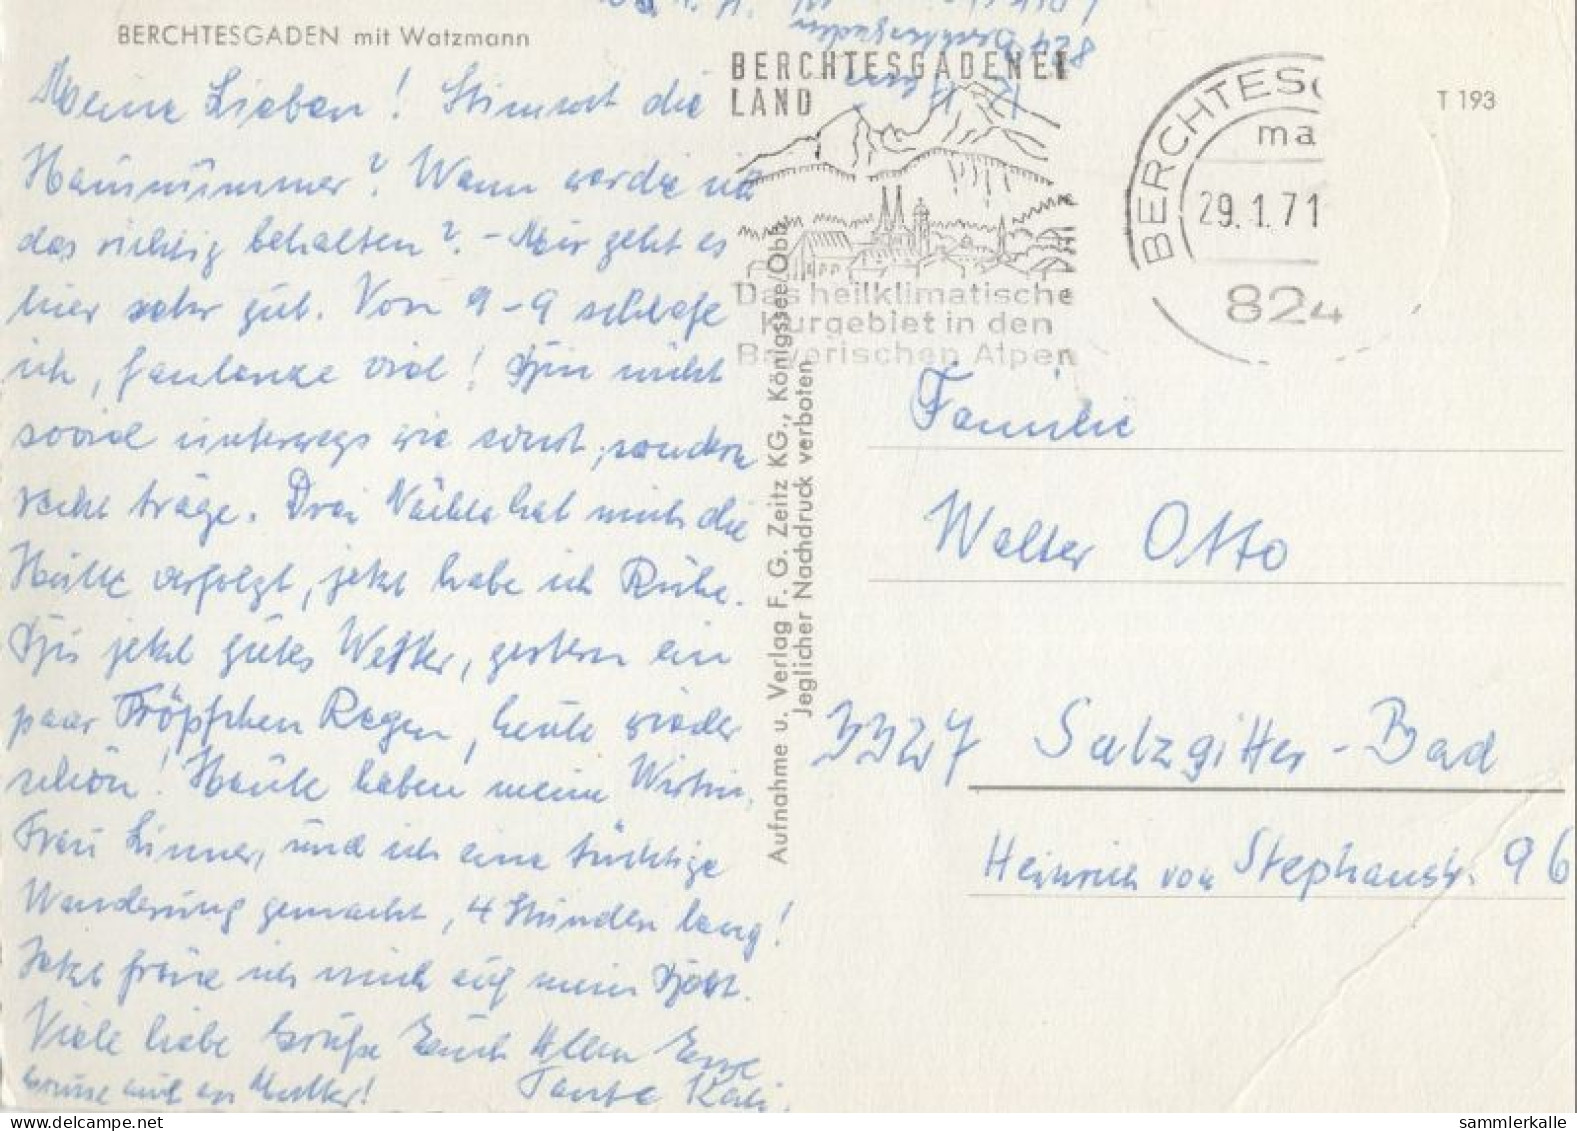 BERCHTESGADEN mit Watzmann
Meine Lieben! Stimmt die
Hausnummer? Wann werde ich
das richtig behalten? - Mir geht es
hier sehr gut. Von 9-9 schlafe
ich, faulenze viel! Bin nicht
soviel unterwegs wie sonst, sondern
recht träge. Drei Nächte hat mich die
Hütte verfolgt, jetzt habe ich Ruhe.
Bis jetzt gutes Wetter, gestern ein
paar Tröpfchen Regen, heute wieder
schön! Heute haben meine Wirtin,
Frau Linner, und ich eine tüchtige
Wanderung gemacht, 4 Stunden lang!
Jetzt freue ich mich auf mein Bett.
Viele liebe Grüße Euch Allen Eure
Grüsse auch an Mutter! Tante Käti.
824 Berchtesgaden
BERCHTESGADENER
LAND
Das heilklimatische
Kurgebiet in den
Bayerischen Alpen
BERCHTESG
ma
29.1.71
824
T 193
Aufnahme u. Verlag F. G. Zeitz KG., Königssee/Obb.
Jeglicher Nachdruck verboten
Familie
Walter Otto
3327 Salzgitter-Bad
Heinrich von Stephanstr. 96
sammlerkalle